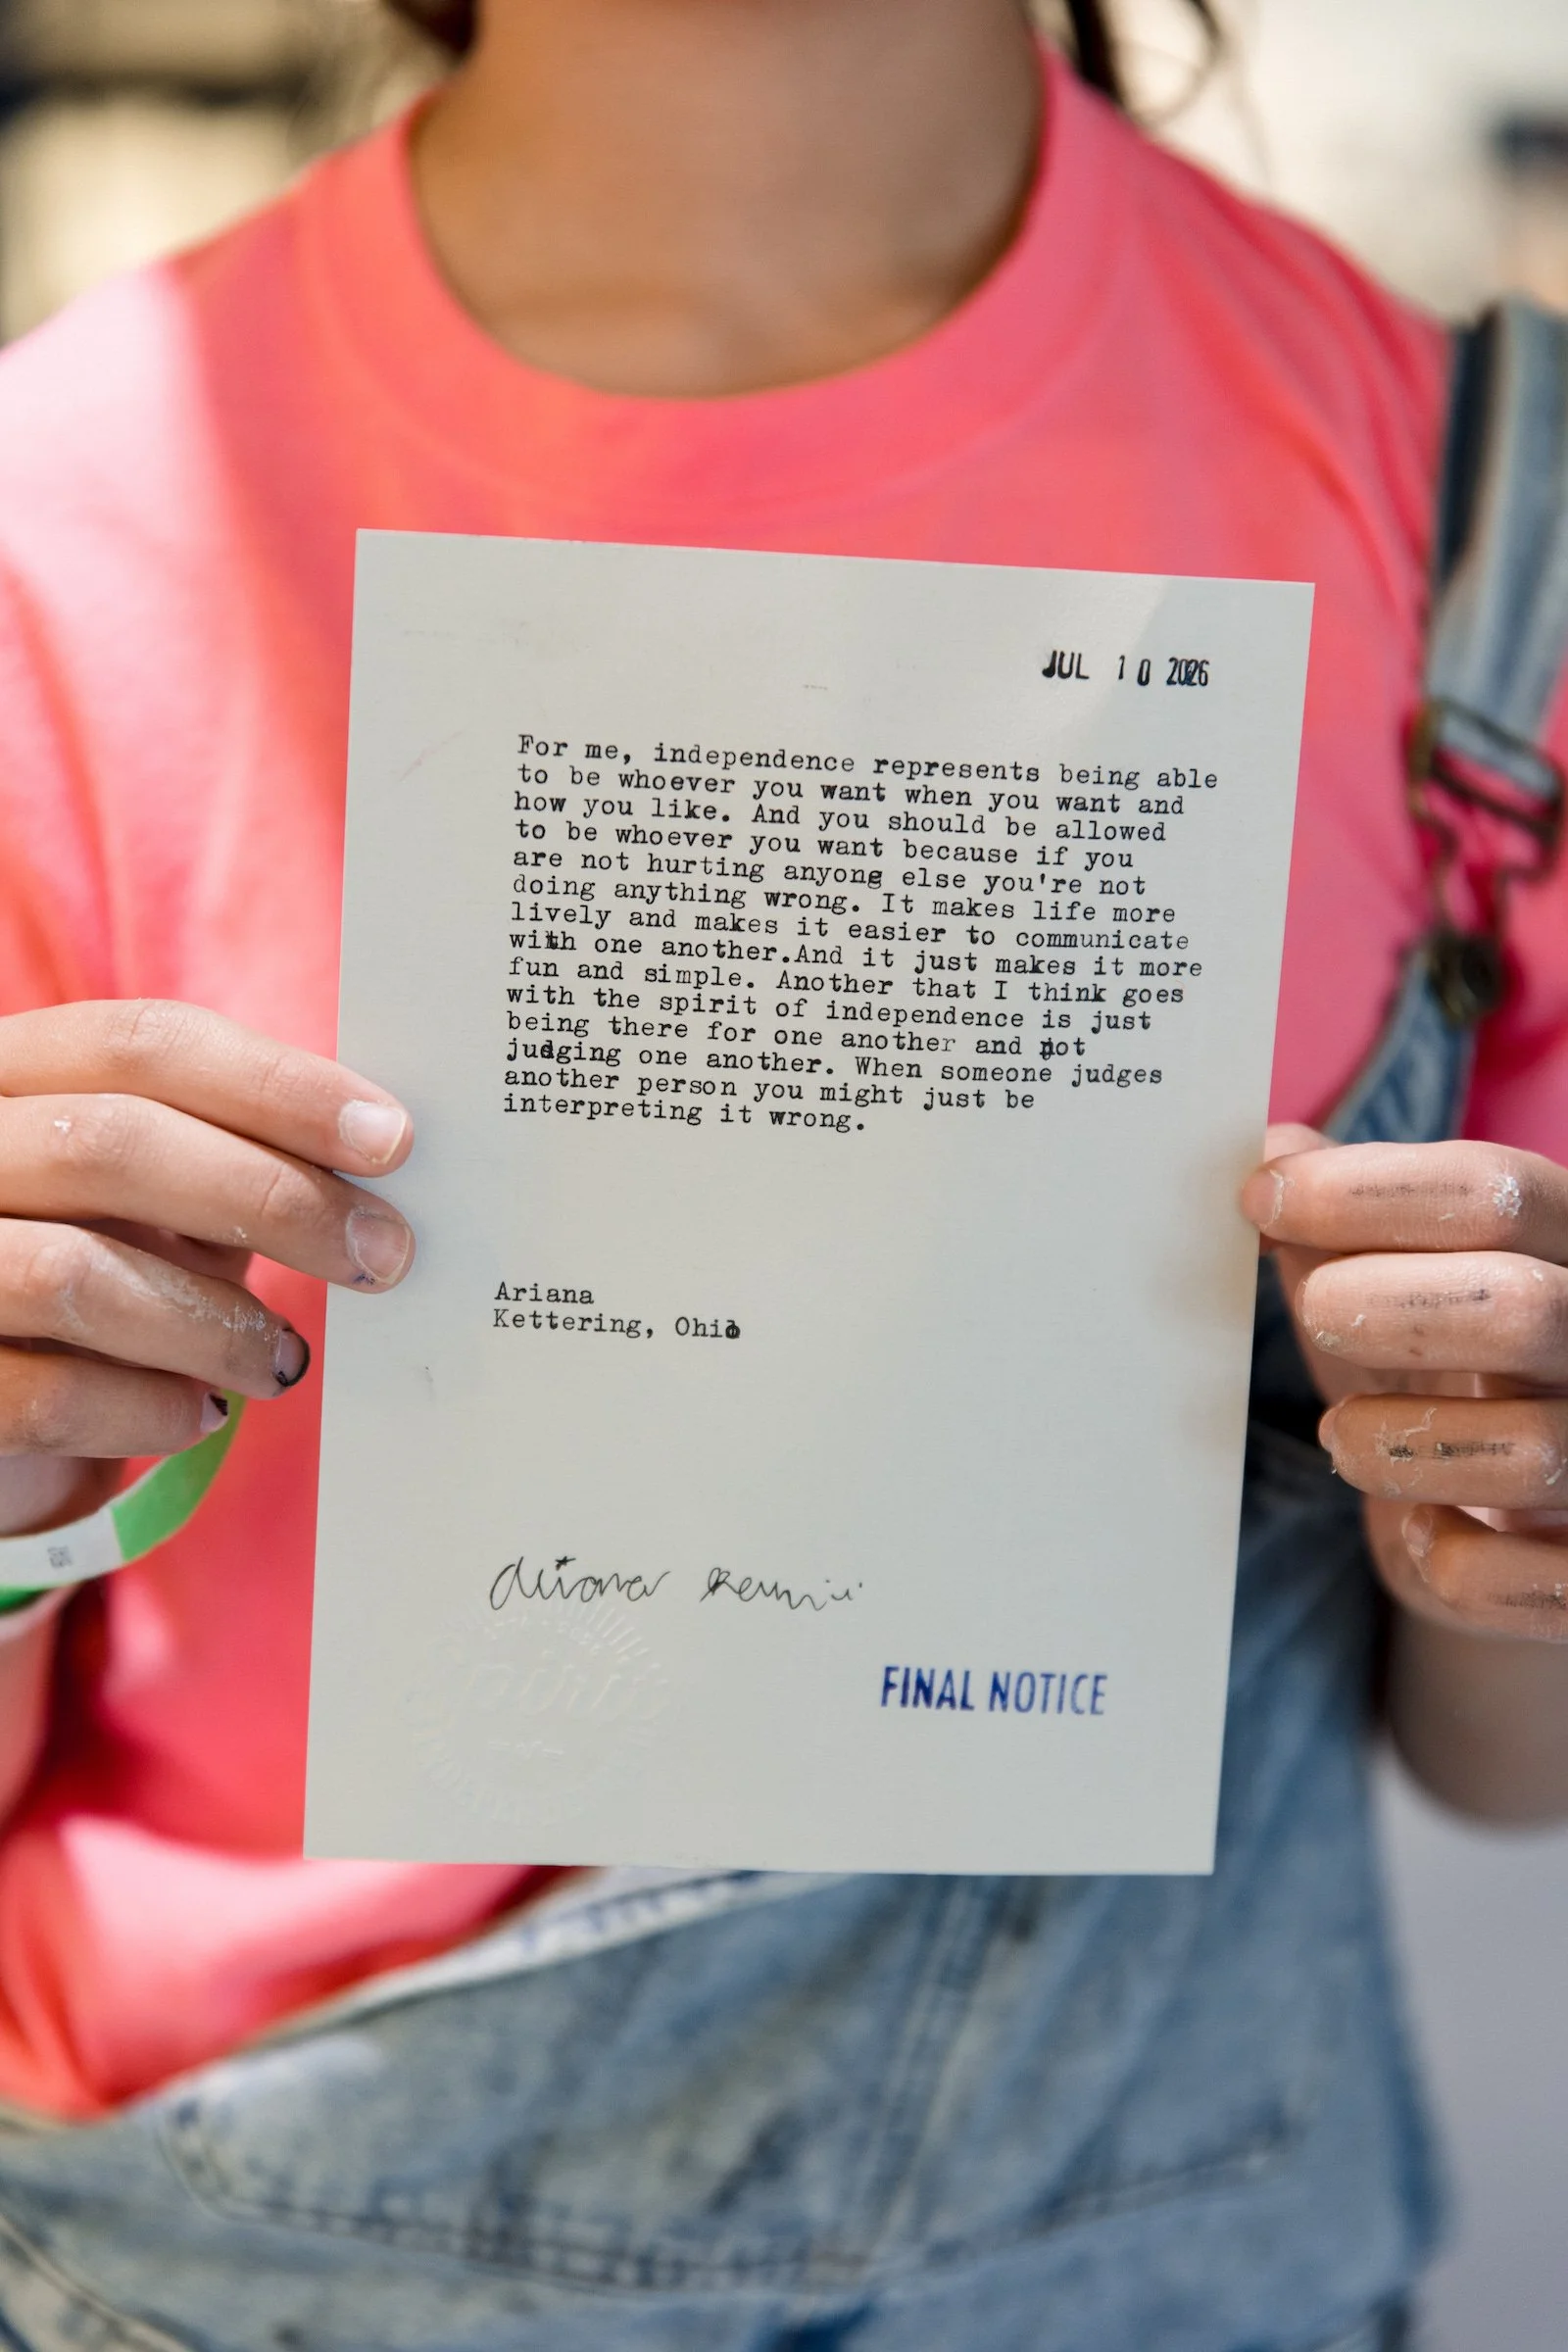 JUL 10 2026
For me, independence represents being able
to be whoever you want when you want and
how you like. And you should be allowed
to be whoever you want because if you
are not hurting anyone else you're not
doing anything wrong. It makes life more
lively and makes it easier to communicate
with one another.And it just makes it more
fun and simple. Another that I think goes
with the spirit of independence is just
being there for one another and not
judging one another. When someone judges
another person you might just be
interpreting it wrong.
Ariana
Kettering, Ohio
Ariana
FINAL NOTICE